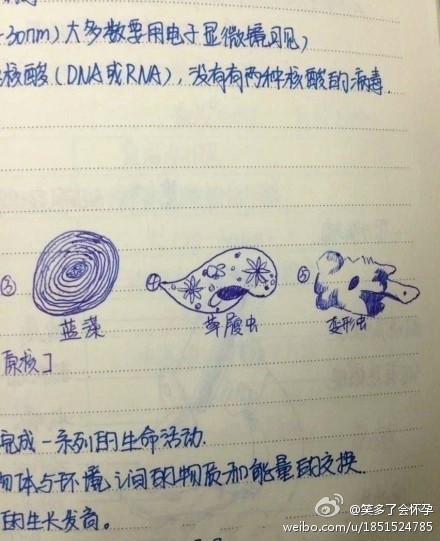 30nm)大多数要用电子显微镜见)
核酸(DNA或RNA),没有有两种核酸的病毒.
③ ④ ⑤
蓝藻 草履虫 变形虫
原核]
完成一系列的生命活动.
物体与环境之间的物质和能量的交换
的生长发育。
@笑多了会怀孕
weibo.com/u/1851524785